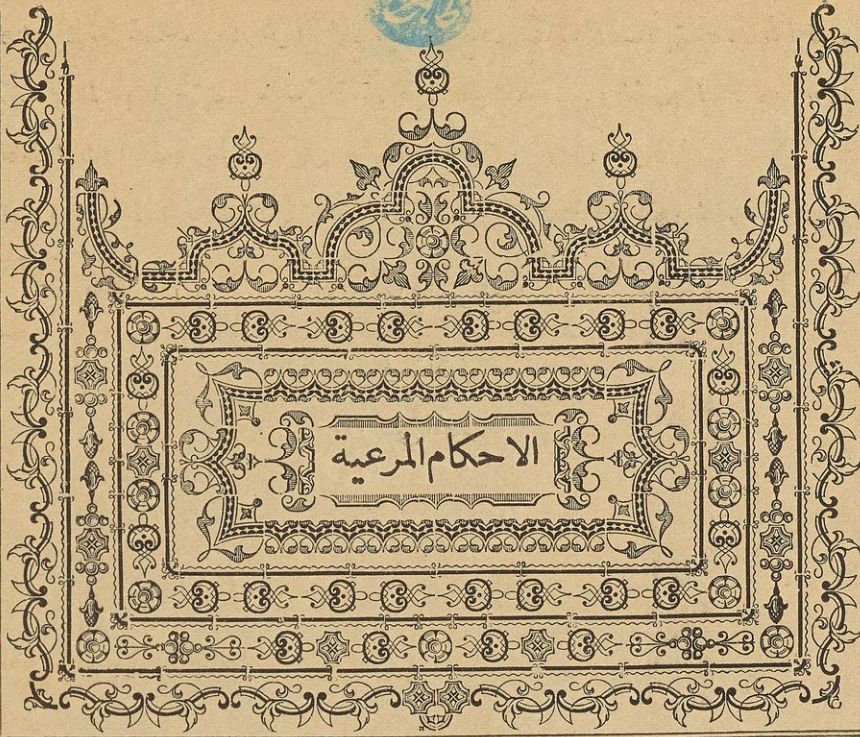 الاحكام المرعية